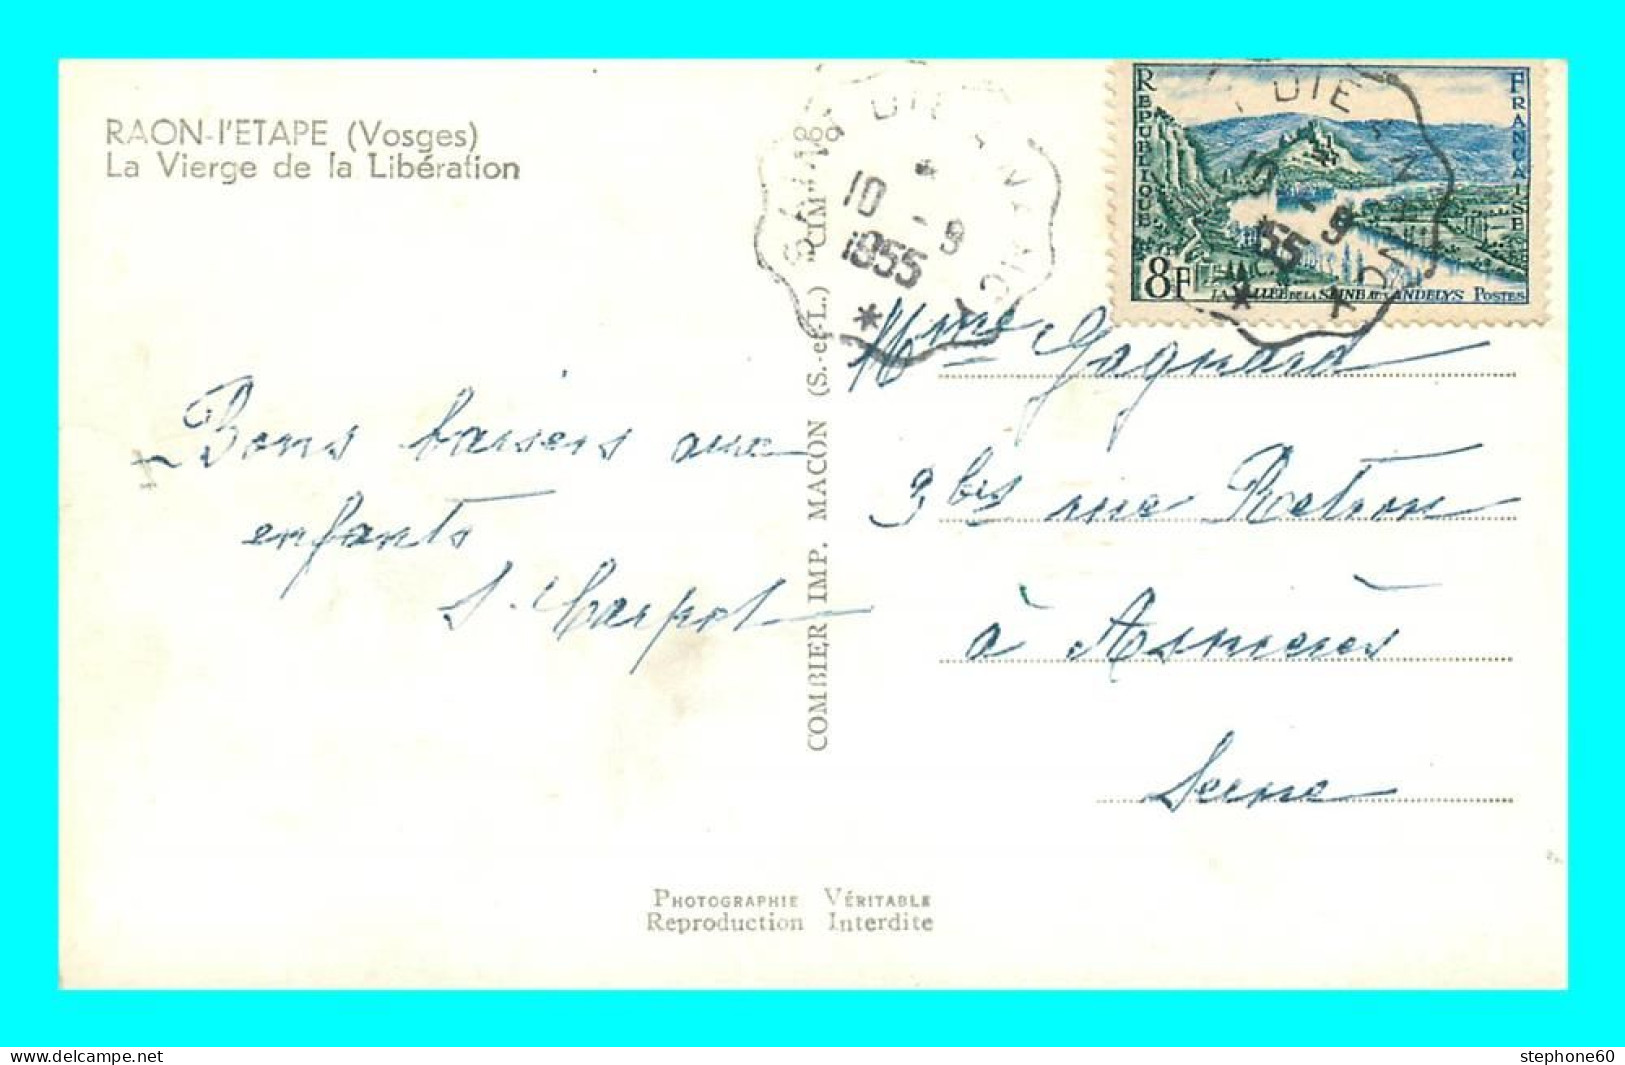 RAON-l'ETAPE (Vosges)
La Vierge de la Libération
RÉPUBLIQUE
FRANÇAISE
8F
LA VALLÉE DE LA SEINE AUX ANDELYS POSTES
10 - 9
1955
- 9
55
Bons baisers aux
enfants
COMBIER IMP. MACON (S.-et-L.) "CIM"
Mme Gagnard
3 bis rue Retrou
à Asnières
Seine
PHOTOGRAPHIE VÉRITABLE
Reproduction Interdite
www.delcampe.net
stephone60